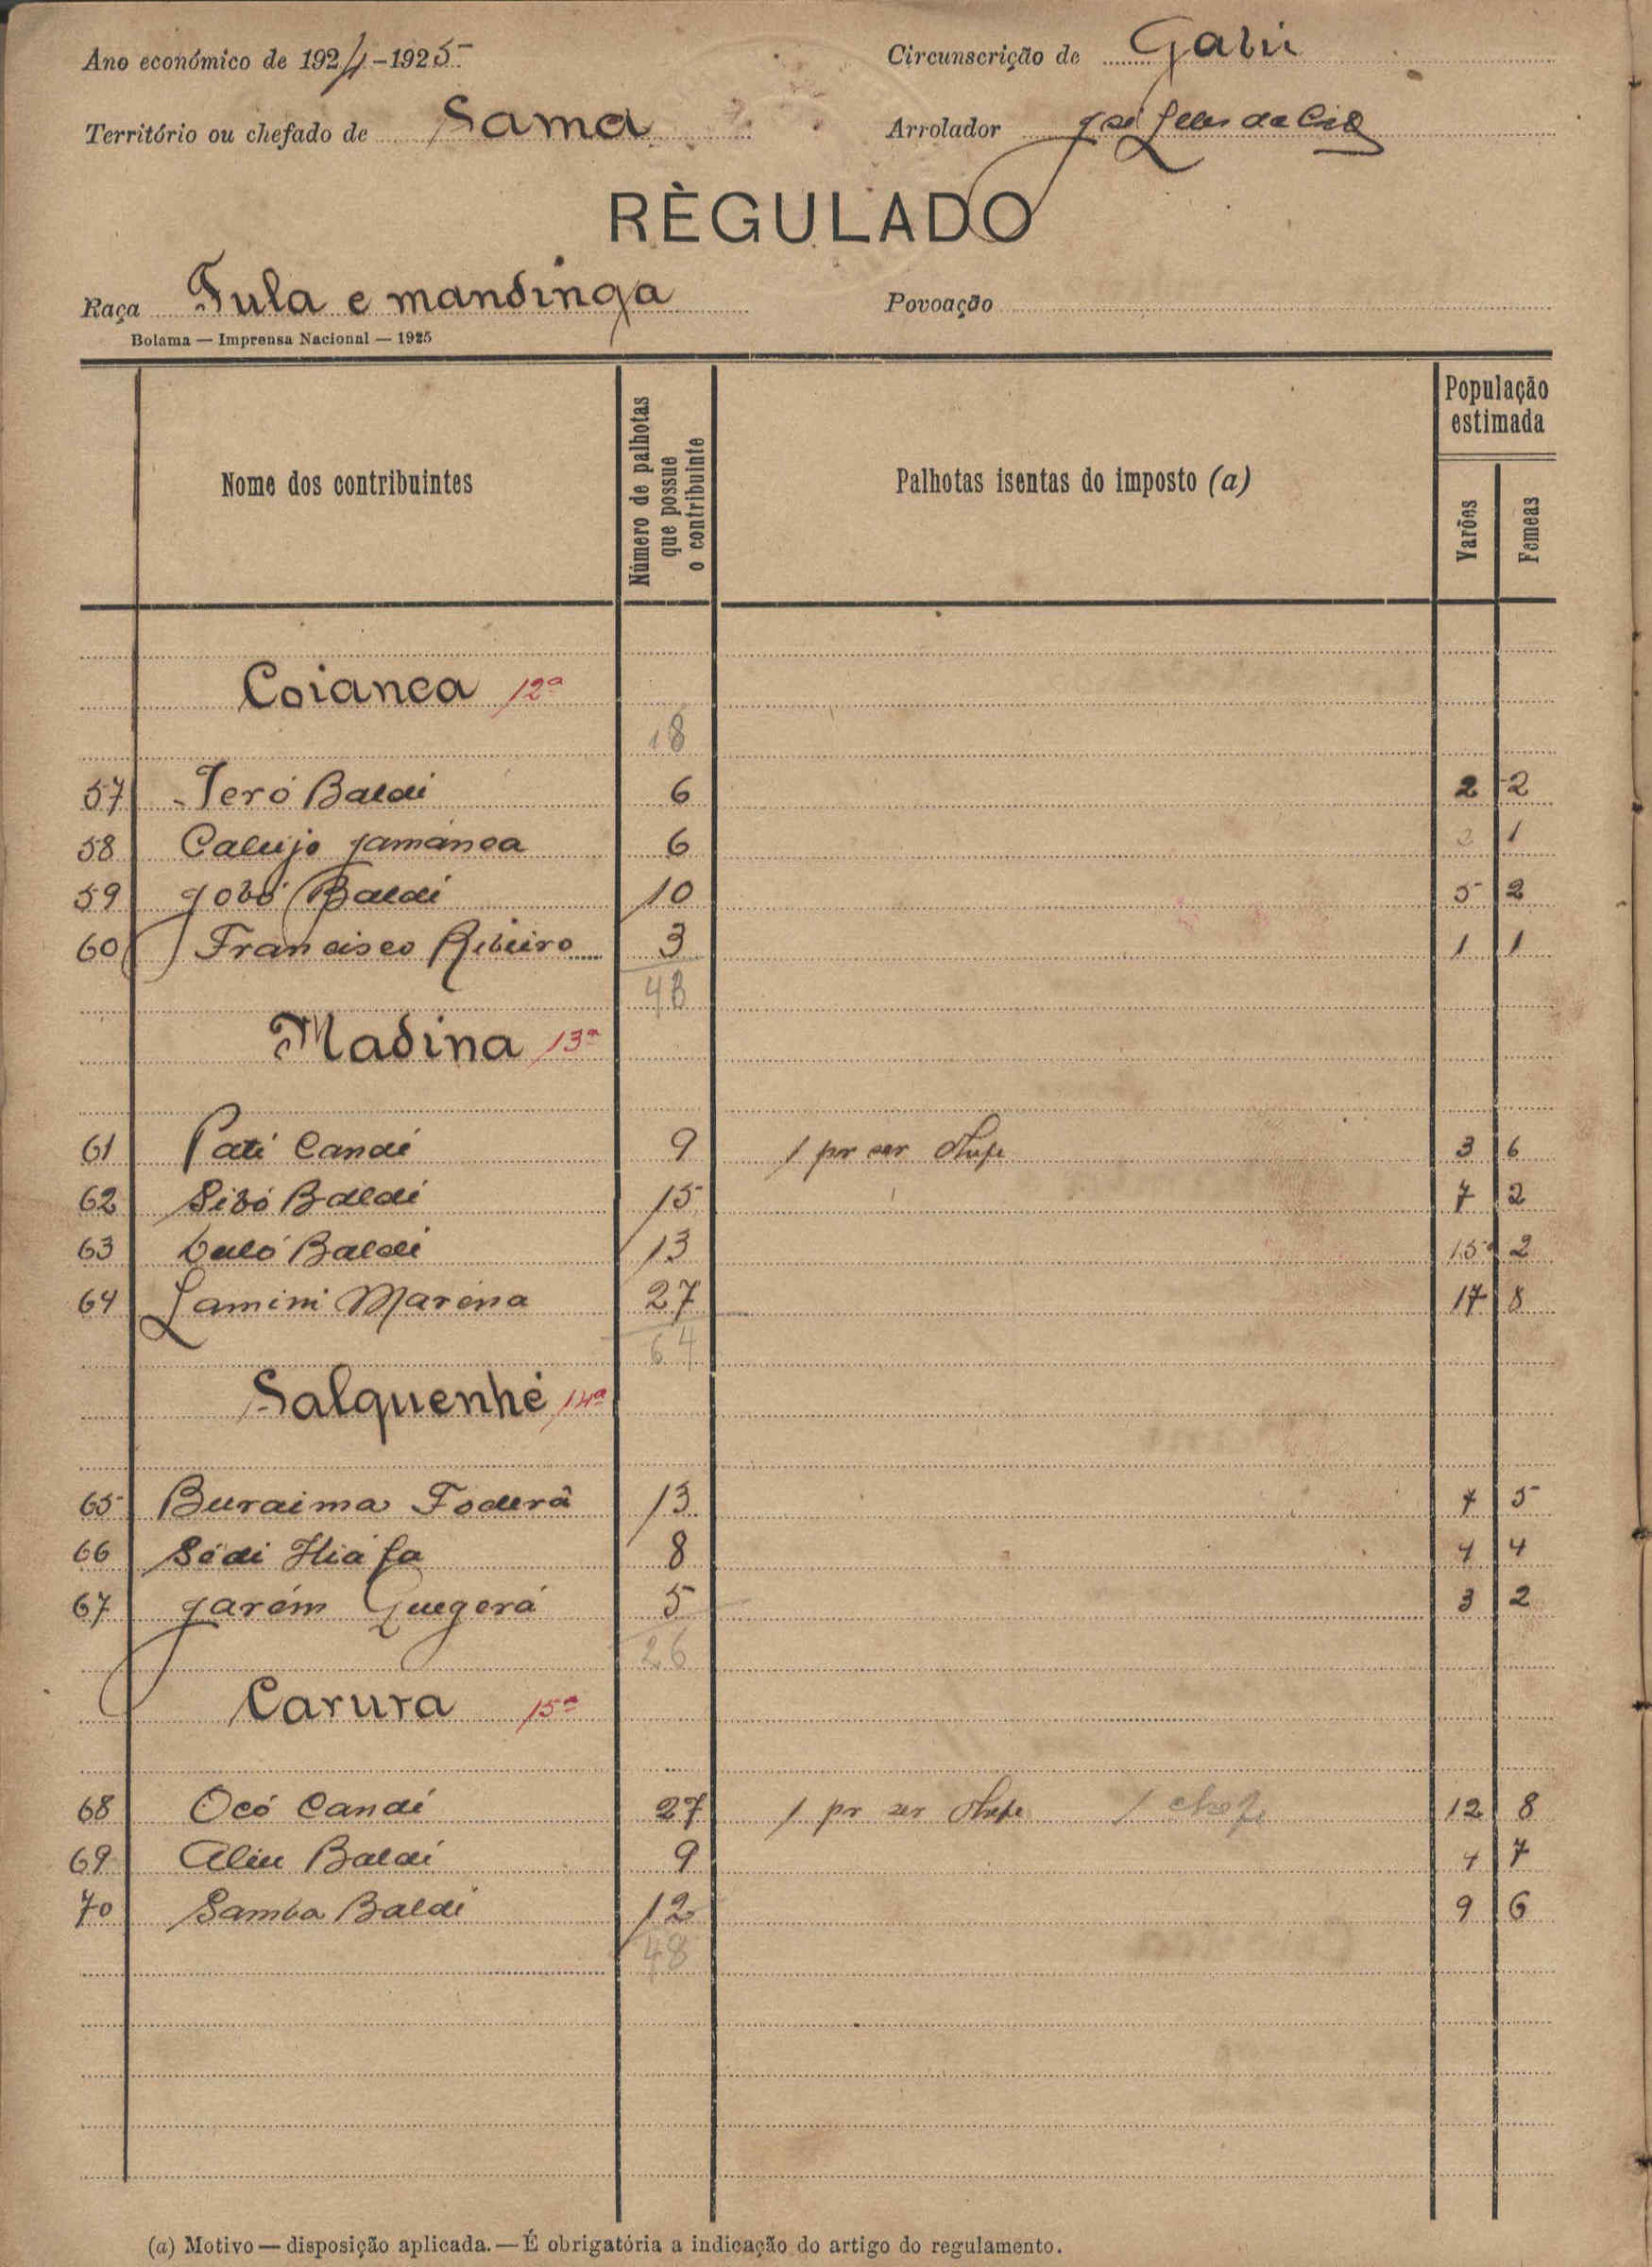 Ano económico de 1924-1925
Circunscrição de Gabú
Território ou chefado de Sama
Arrolador José
RÈGULADO
Raça Fula e mandinga
Povoação
Bolama — Imprensa Nacional — 1925
Nome dos contribuintes
Número de palhotas que possue o contribuinte
Palhotas isentas do imposto (a)
População estimada
Varões
Femeas
Coianca 12ª
18
57 Jeró Baldi 6 2 2
58 Calujo Jamanca 6 2 1
59 Jobó Baldi 10 5 2
60 Francisco Ribeiro 3 1 1
43
Madina 13ª
61 Pati Candi 9 1 por ser chefe 3 6
62 Sibó Baldi 15 7 2
63 Buló Baldi 13 15 2
64 Lamini Marena 27 17 8
64
Salquenhé 14ª
65 Buraima Foderá 13 7 5
66 Sédi 8 4 4
67 Jarém Guegerá 5 3 2
26
Carura 15ª
68 Ocó Candi 27 1 pr ser chefe 1 chefe 12 8
69 Aliu Baldi 9 4 7
70 Samba Baldi 12 9 6
48
(a) Motivo — disposição aplicada. — É obrigatória a indicação do artigo do regulamento.